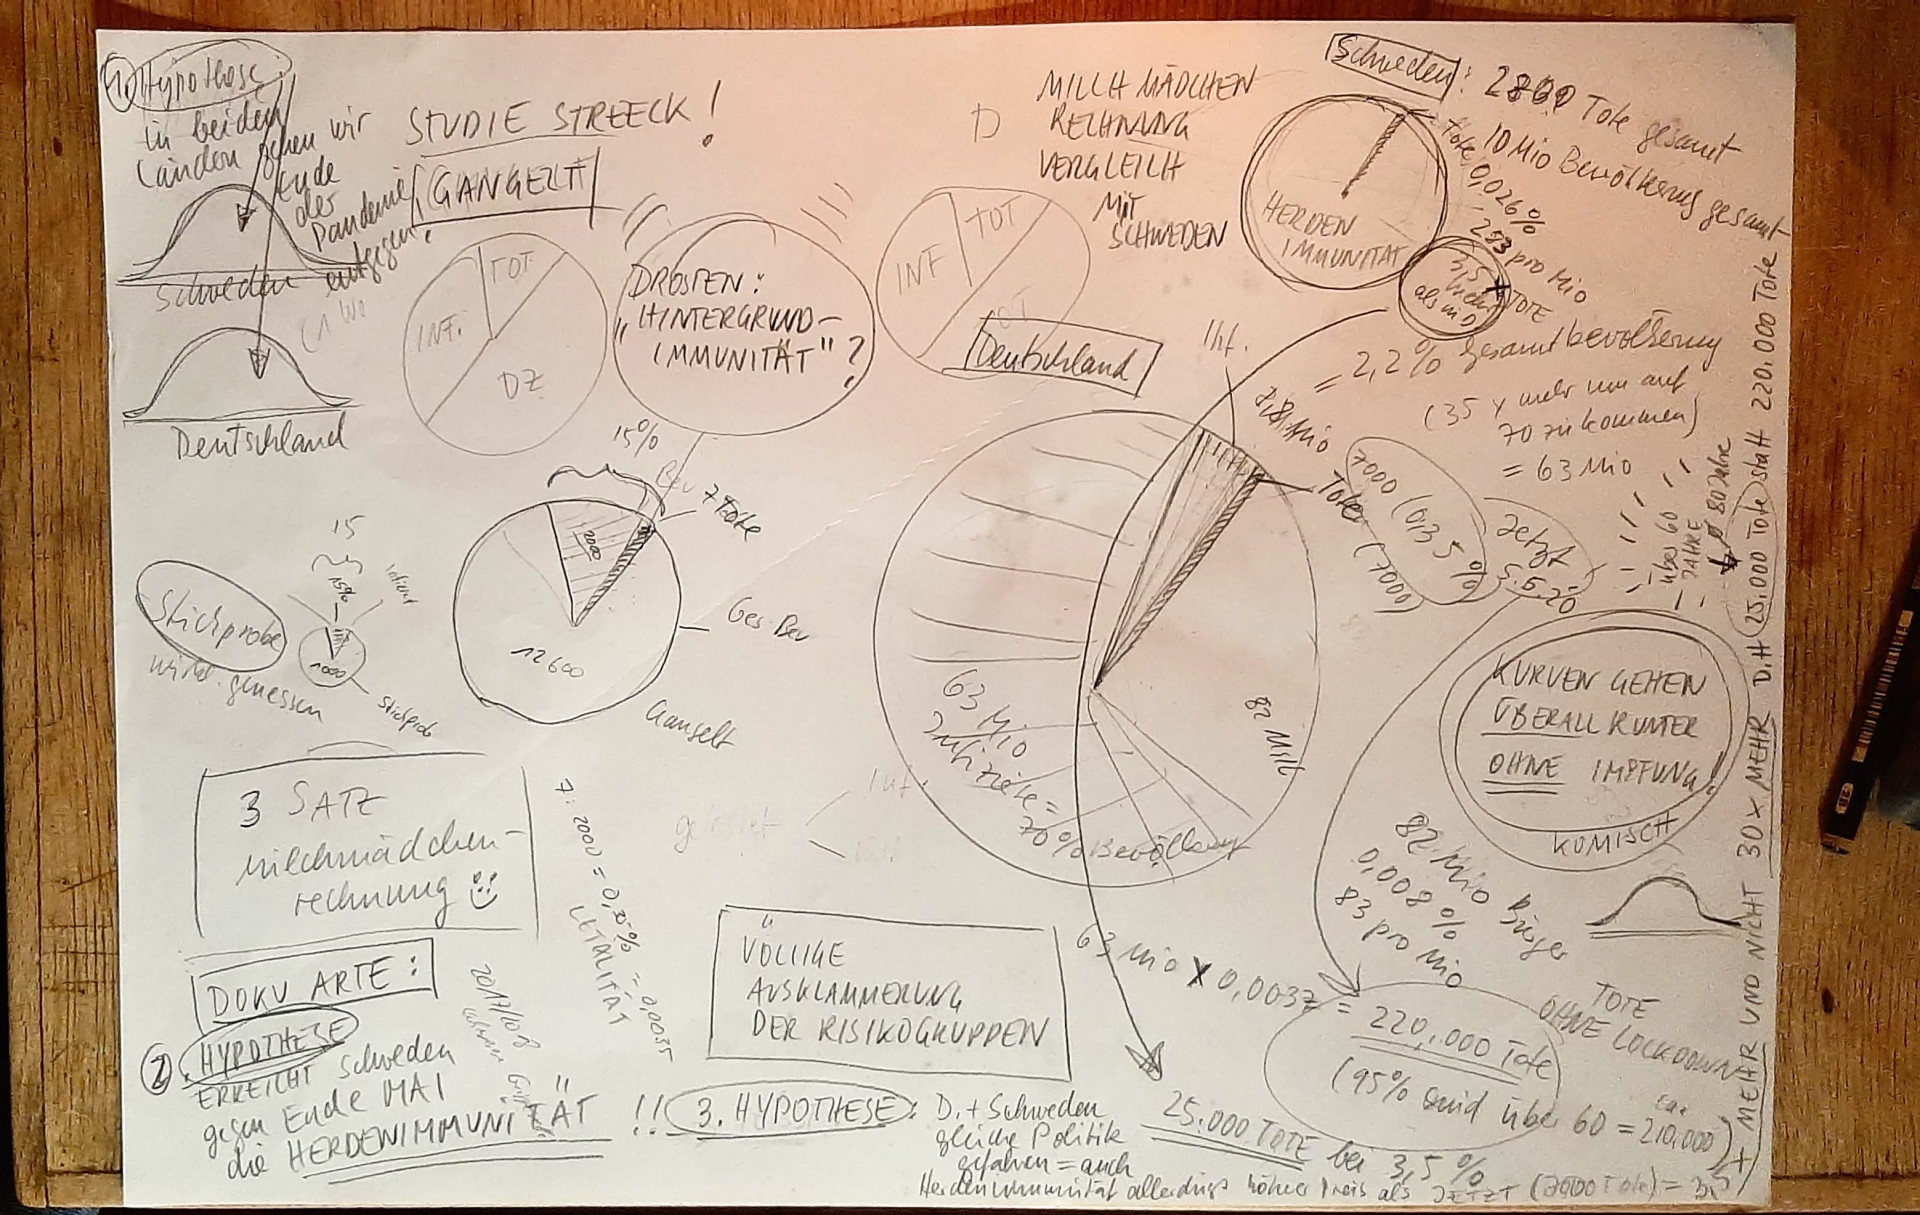 1. Hypothese
in beiden
Ländern gehen wir
Ende
der
Pandemie
entgegen.
Schweden
Deutschland
STUDIE STREECK!
GANGELT
INF.
TOT
DZ
DROSTEN:
"HINTERGRUND-
IMMUNITÄT"?
INF
TOT
D
MILCHMÄDCHEN
RECHNUNG
VERGLEICH
MIT
SCHWEDEN
HERDEN
IMMUNITÄT
Schweden: Tote gesamt
10 Mio Bevölkerung gesamt
Tote 0,026%
283 pro Mio
3,5 x
mehr TOTE
als in D
= 2,2% Gesamtbevölkerung
(35 x mehr um auf
70 zu kommen)
= 63 Mio
Deutschland
Inf.
7,8 Mio
Tote
7000 (0,35%)
(7000)
Jetzt
5.5.20
über 60
JAHRE
80 Jahre
15%
7 Tote
2000
12600
Ges. Bev
Gangelt
15
15%
1000
Stichprobe
Stichprobe
wird gemessen
63 Mio
Infizierte =
70% Bevölkerung
82 Mill
KURVEN GEHEN
ÜBERALL RUNTER
OHNE IMPFUNG!
KOMISCH
3 SATZ
milchmädchen-
rechnung
7:2000 = 0,35% = 0,0035
LETALITÄT
82 Mio Bürger
0,008%
83 pro Mio
DOKU ARTE:
2017/08
VÖLLIGE
AUSKLAMMERUNG
DER RISIKOGRUPPEN
63 Mio x 0,0037 = 220.000 Tote
(95% sind über 60 = 210.000)
TOTE
OHNE LOCKDOWN
2. HYPOTHESE
ERREICHT Schweden
gegen Ende MAI
die HERDENIMMUNITÄT !!
3. HYPOTHESE: D. + Schweden
gleiche Politik
gefahren = auch
Herdenimmunität allerdings höherer Preis als JETZT (7000 Tote)
25.000 TOTE bei 3,5%
MEHR UND NICHT 30 x MEHR D.H 25.000 Tote statt 220.000 Tote